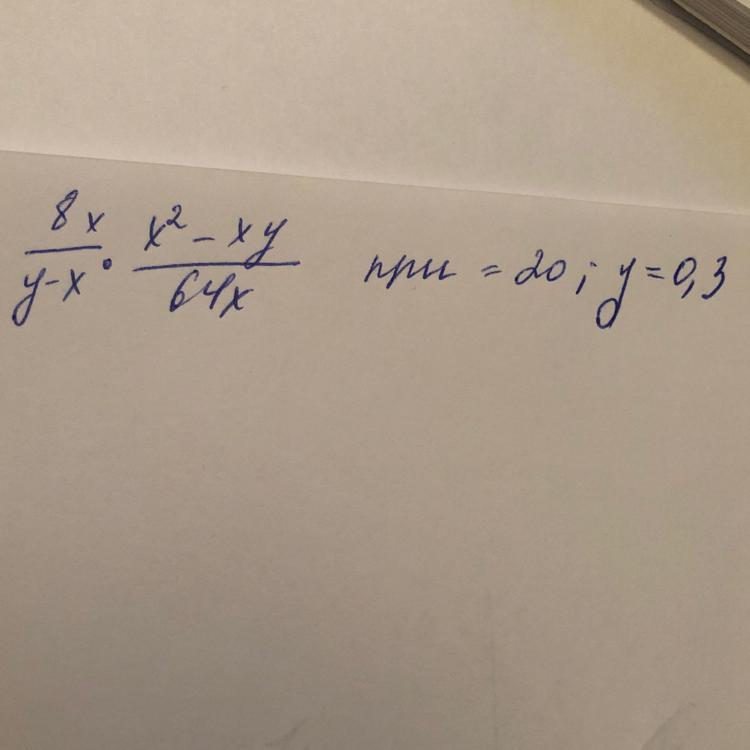 8x/(y-x) · (x² - xy)/(64x) при = 20; y = 0,3